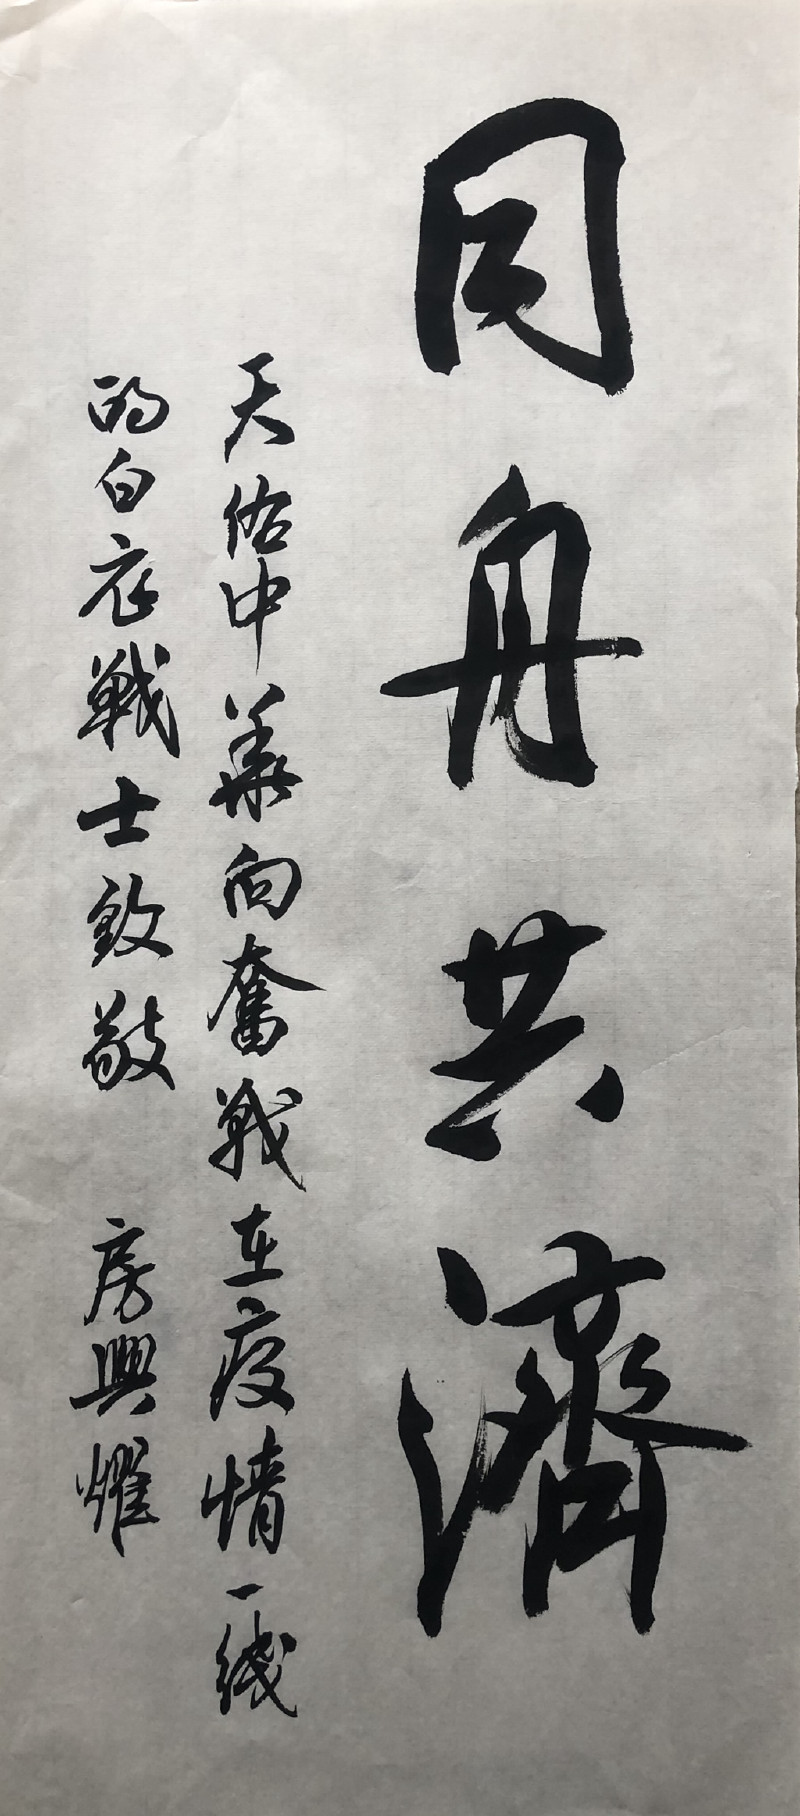 同舟共濟
天佑中華向奮戰在疫情一綫
的白衣戰士致敬 房興耀